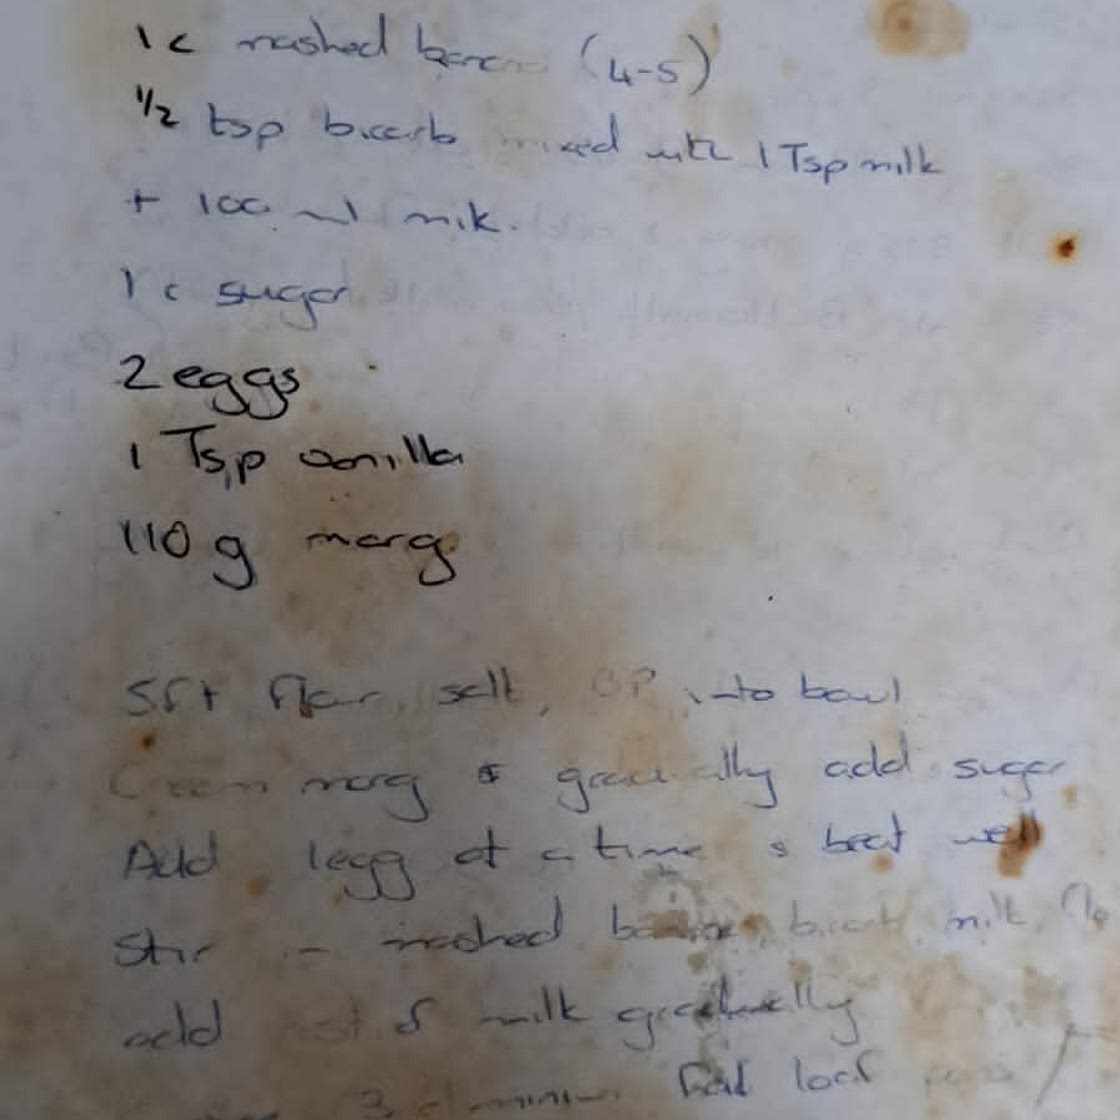 1 c mashed banana (4-5)
1/2 tsp bicarb mixed with 1 Tsp milk
+ 100 ml milk.
1 c sugar
2 eggs
1 Tsp vanilla
110 g marg
Sift flour, salt, BP into bowl
Cream marg & gradually add sugar
Add 1 egg at a time & beat well
Stir in mashed banana, bicarb, milk,
add rest of milk gradually
3 aluminium foil loaf